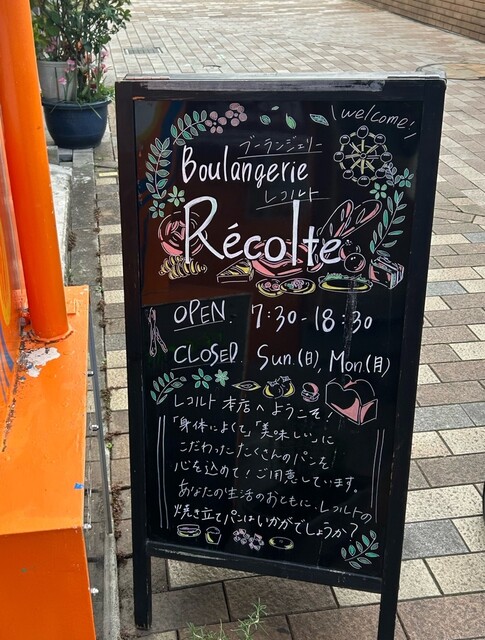 welcome!
ブーランジェリー
Boulangerie
レコルト
Récolte
OPEN. 7:30-18:30
CLOSED. Sun.(日), Mon(月)
レコルト本店へようこそ!
「身体によくて」「美味しい」に
こだわったたくさんのパンを
心を込めて!ご用意しています。
あなたの生活のおともに、レコルトの
焼き立てパンはいかがでしょうか?